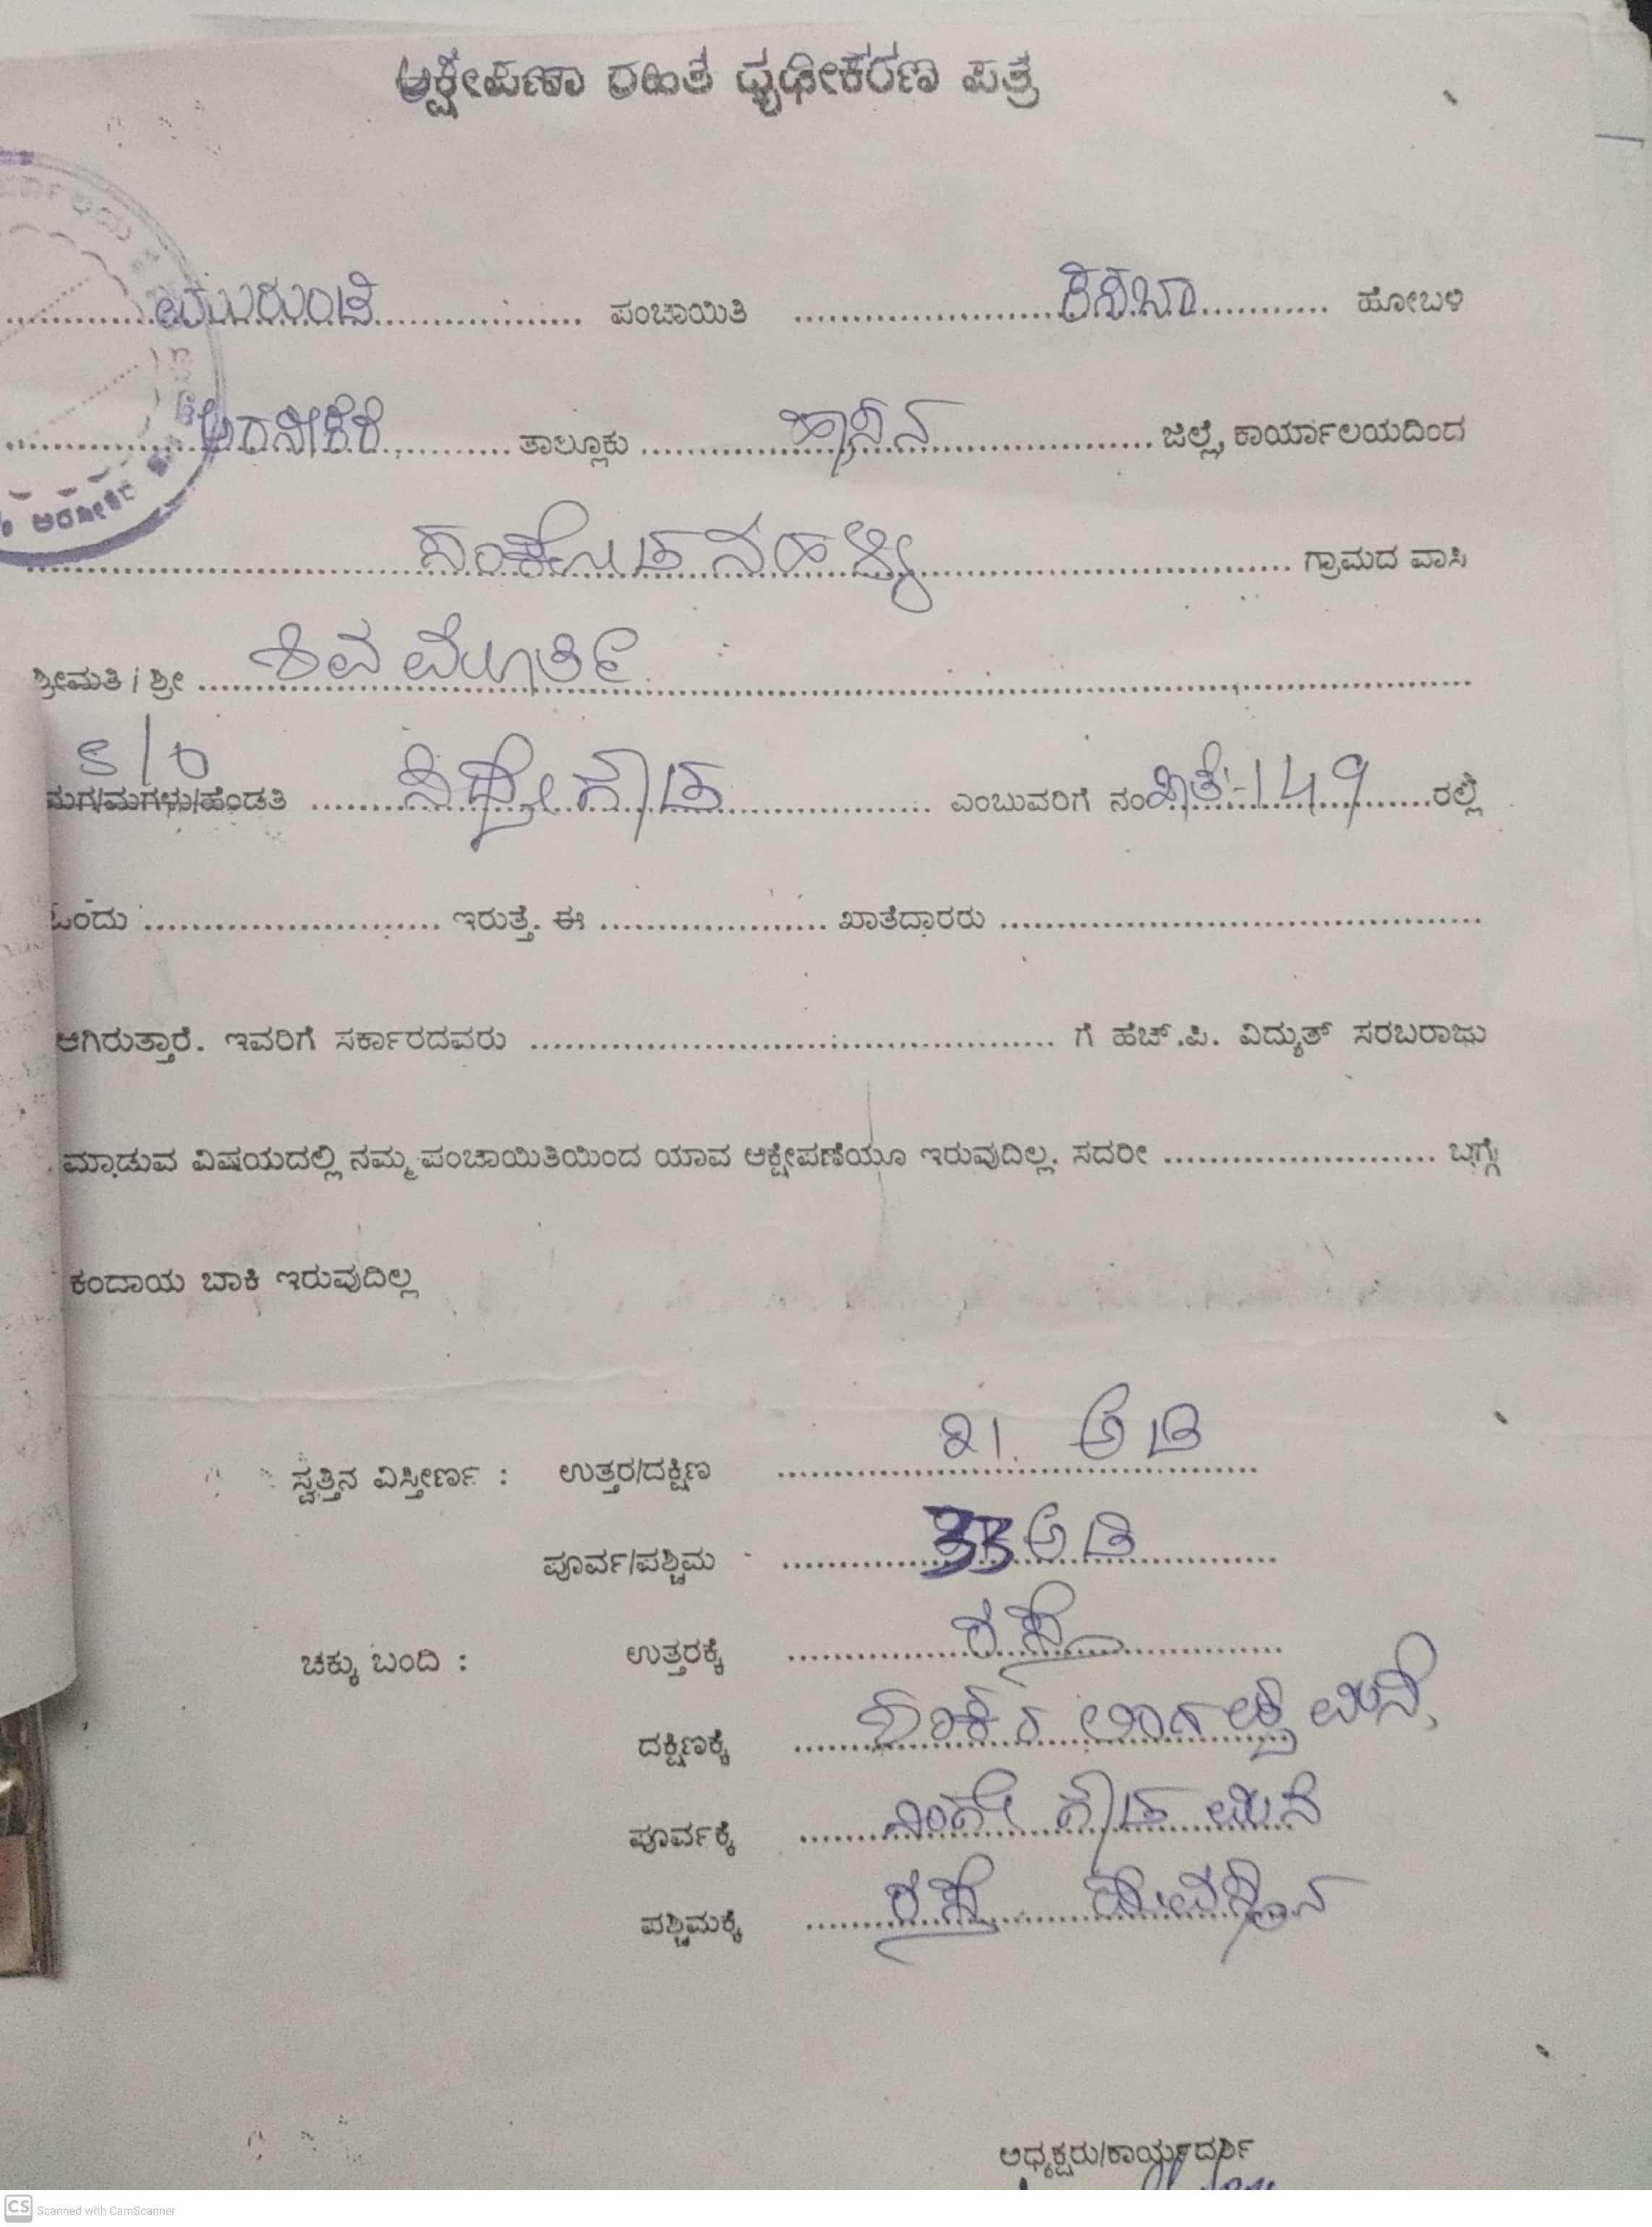 ಆಕ್ಷೇಪಣಾ ರಹಿತ ಧೃಢೀಕರಣ ಪತ್ರ
ಮುರುಂಡಿ ಪಂಚಾಯಿತಿ ಕಸಬಾ ಹೋಬಳಿ
ಅರಸೀಕೆರೆ ತಾಲ್ಲೂಕು ಹಾಸನ ಜಿಲ್ಲೆ, ಕಾರ್ಯಾಲಯದಿಂದ
ಗ್ರಾಮದ ವಾಸಿ
ಶ್ರೀಮತಿ / ಶ್ರೀ ಶಿವ ಮೂರ್ತಿ
S/o
ಮಗ/ಮಗಳು/ಹೆಂಡತಿ ಸಿದ್ದೇಗೌಡ ಎಂಬುವರಿಗೆ ನಂ ಖಾತೆ-149 ರಲ್ಲಿ
ಒಂದು .................... ಇರುತ್ತೆ. ಈ .................... ಖಾತೆದಾರರು ....................
ಆಗಿರುತ್ತಾರೆ. ಇವರಿಗೆ ಸರ್ಕಾರದವರು .................... ಗೆ ಹೆಚ್.ಪಿ. ವಿದ್ಯುತ್ ಸರಬರಾಜು
ಮಾಡುವ ವಿಷಯದಲ್ಲಿ ನಮ್ಮ ಪಂಚಾಯಿತಿಯಿಂದ ಯಾವ ಆಕ್ಷೇಪಣೆಯೂ ಇರುವುದಿಲ್ಲ. ಸದರೀ .................... ಬಗ್ಗೆ
ಕಂದಾಯ ಬಾಕಿ ಇರುವುದಿಲ್ಲ
ಸ್ವತ್ತಿನ ವಿಸ್ತೀರ್ಣ : ಉತ್ತರ/ದಕ್ಷಿಣ ೨೧. ಅಡಿ
ಪೂರ್ವ/ಪಶ್ಚಿಮ 33 ಅಡಿ
ಚಕ್ಕು ಬಂದಿ : ಉತ್ತರಕ್ಕೆ ರಸ್ತೆ
ದಕ್ಷಿಣಕ್ಕೆ ಮನೆ,
ಪೂರ್ವಕ್ಕೆ ನಿಂಗೇಗೌಡ ಮನೆ
ಪಶ್ಚಿಮಕ್ಕೆ ರಸ್ತೆ ದೇವಸ್ಥಾನ
ಅಧ್ಯಕ್ಷರು/ಕಾರ್ಯದರ್ಶಿ
CS Scanned with CamScanner